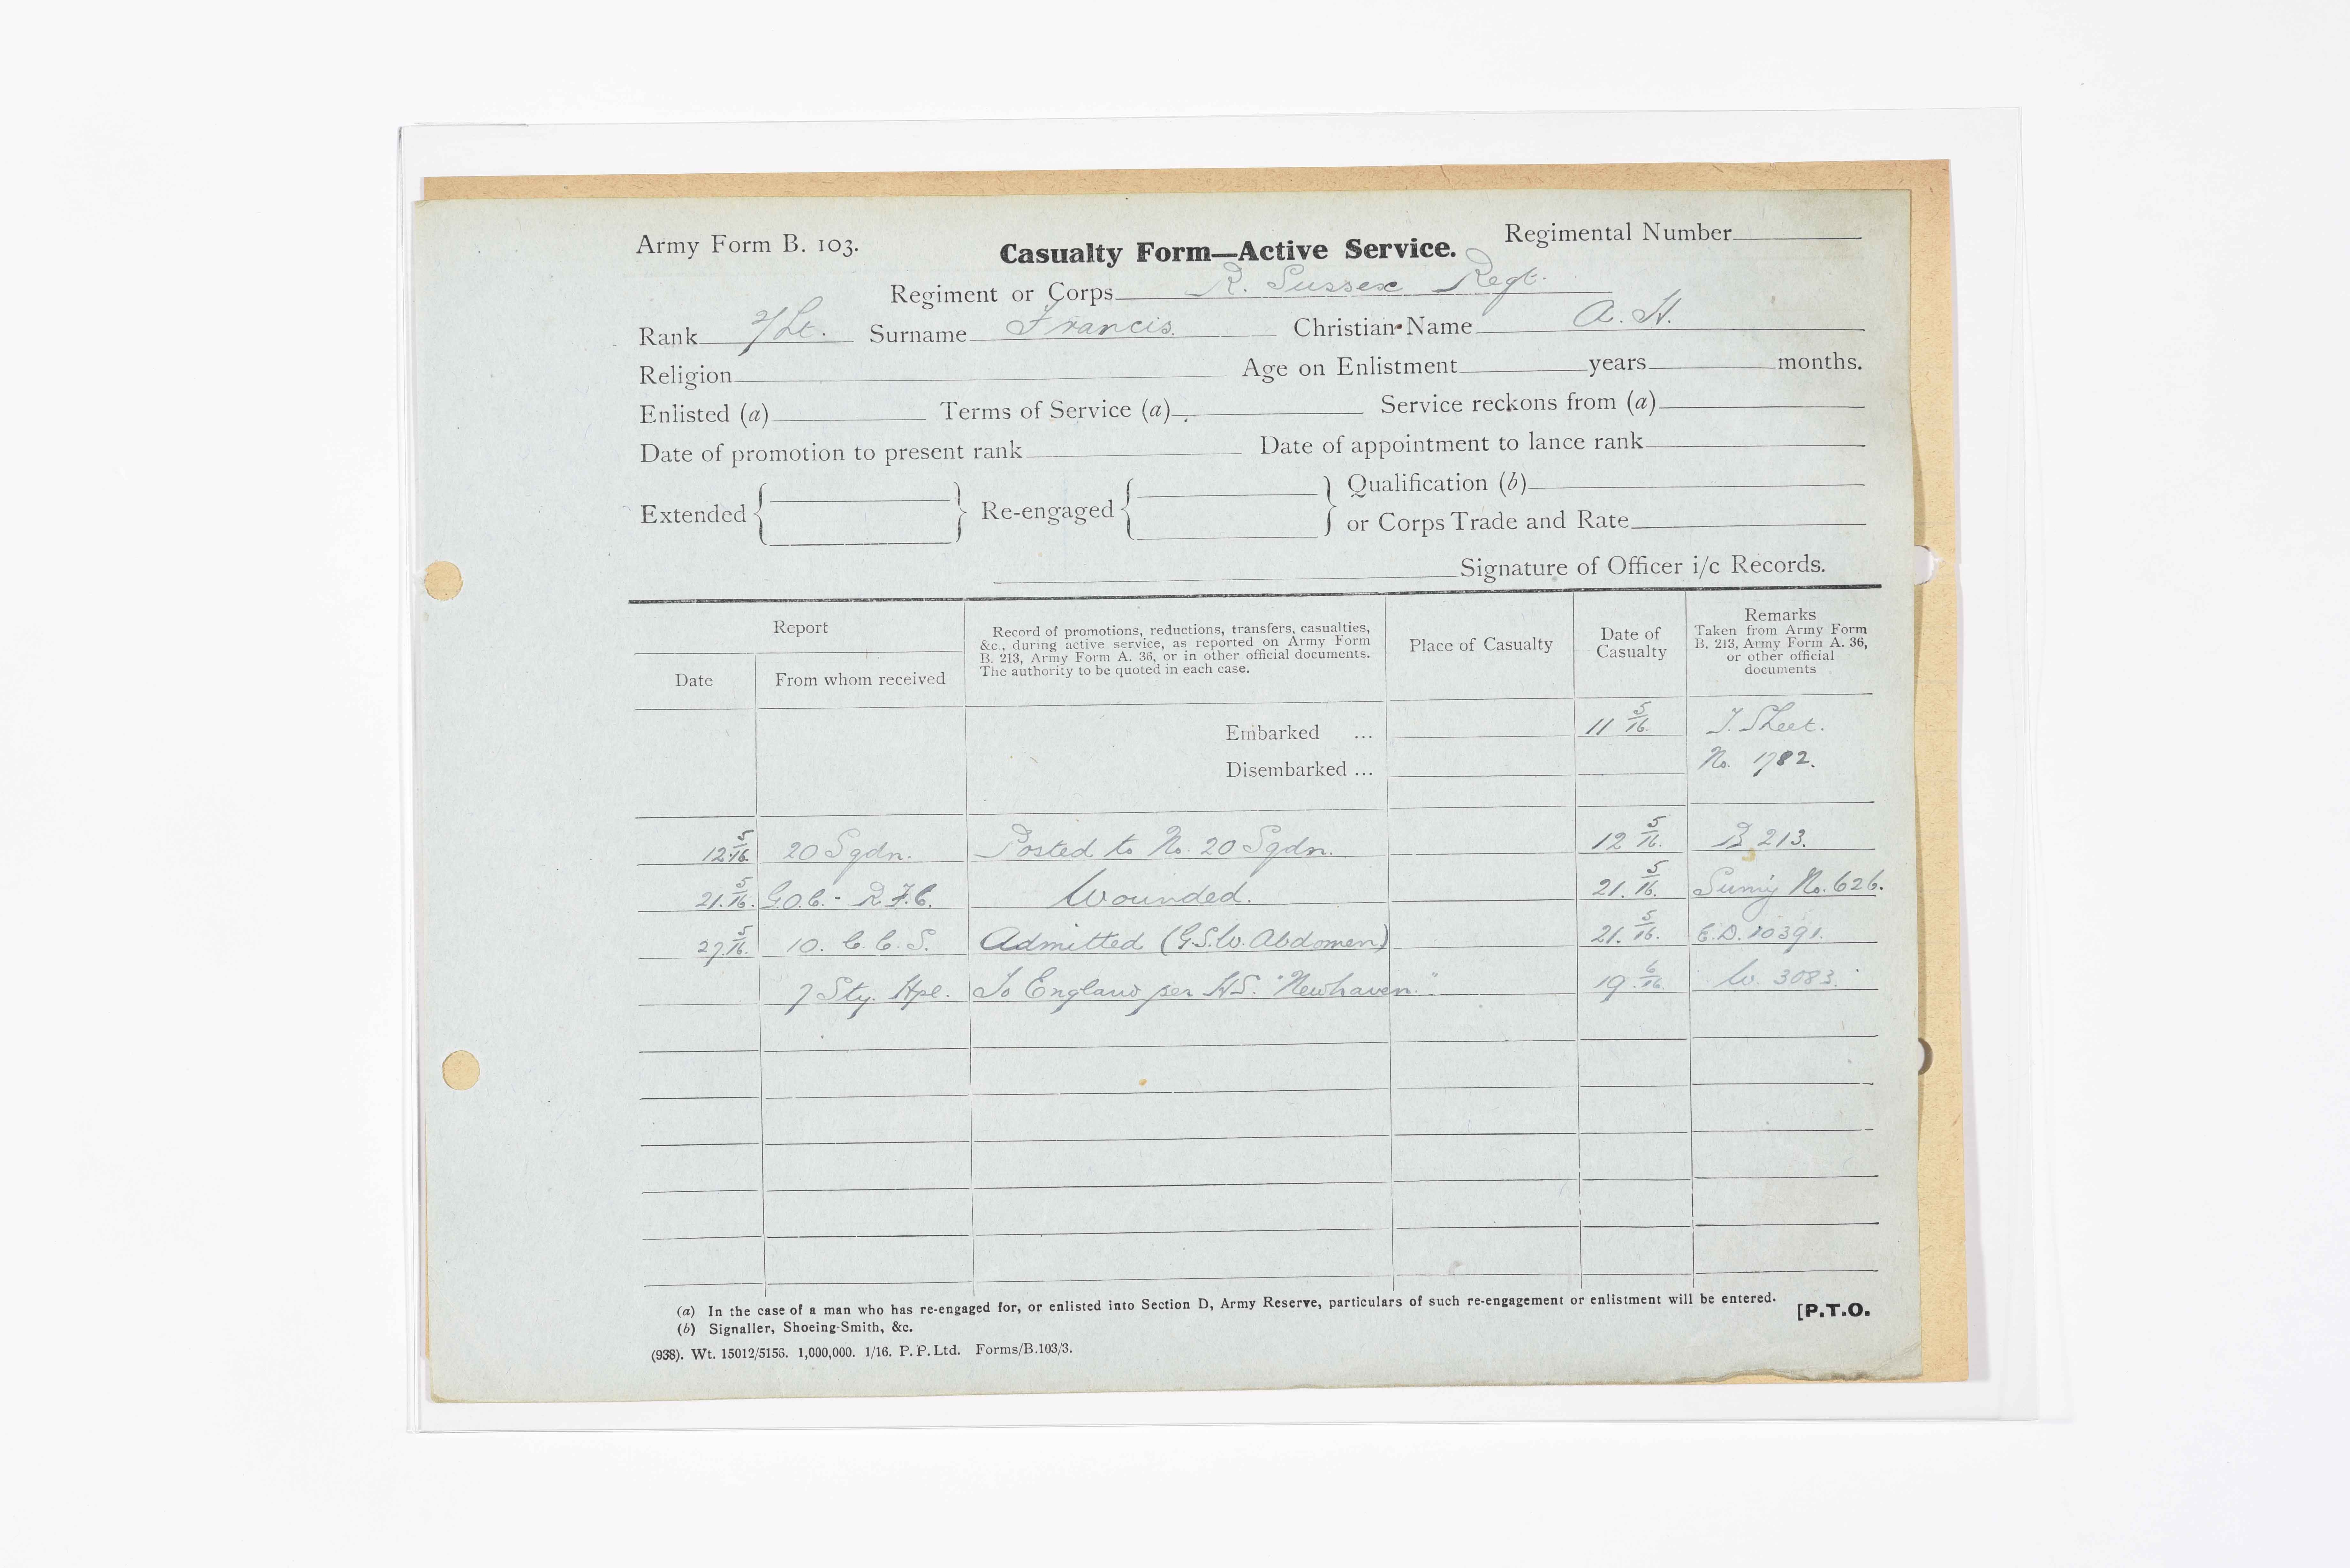 Army Form B. 103.
Casualty Form—Active Service.
Regimental Number
Regiment or Corps R. Sussex Regt.
Rank 2/Lt. Surname Francis. Christian Name A. H.
Religion Age on Enlistment years months.
Enlisted (a) Terms of Service (a) Service reckons from (a)
Date of promotion to present rank Date of appointment to lance rank
Extended Re-engaged Qualification (b)
or Corps Trade and Rate
Signature of Officer i/c Records.
Report
Date
From whom received
Record of promotions, reductions, transfers, casualties,
&c., during active service, as reported on Army Form
B. 213, Army Form A. 36, or in other official documents.
The authority to be quoted in each case.
Place of Casualty
Date of
Casualty
Remarks
Taken from Army Form
B. 213, Army Form A. 36,
or other official
documents
Embarked ... 11 5/16. T. Sheet.
Disembarked ... No. 1782.
12 5/16. 20 Sqdn. Posted to No. 20 Sqdn. 12 5/16. B 213.
21. 5/16. G.O.C. - R.F.C. Wounded. 21. 5/16. No. 626.
27. 5/16. 10. C. C. S. Admitted (G.S.W. Abdomen) 21. 5/16. E.D. 10391.
7 Sty. Hpl. To England per H.S. "Newhaven." 19. 6/16. W. 3083.
(a) In the case of a man who has re-engaged for, or enlisted into Section D, Army Reserve, particulars of such re-engagement or enlistment will be entered.
(b) Signaller, Shoeing-Smith, &c.
[P.T.O.
(938). Wt. 15012/5156. 1,000,000. 1/16. P. P. Ltd. Forms/B.103/3.